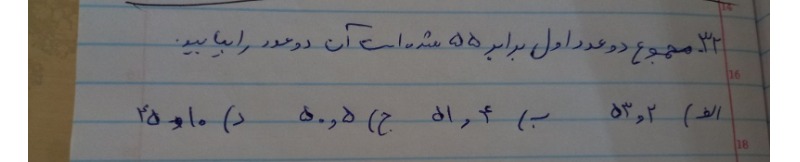 ۳۲. مجموع دو عدد اول برابر ۵۵ شده است آن دو عدد را بیابید.
الف) ۲ و ۵۳ ب) ۴ و ۵۱ ج) ۵ و ۵۰ د) ۱۰ و ۴۵
16
18